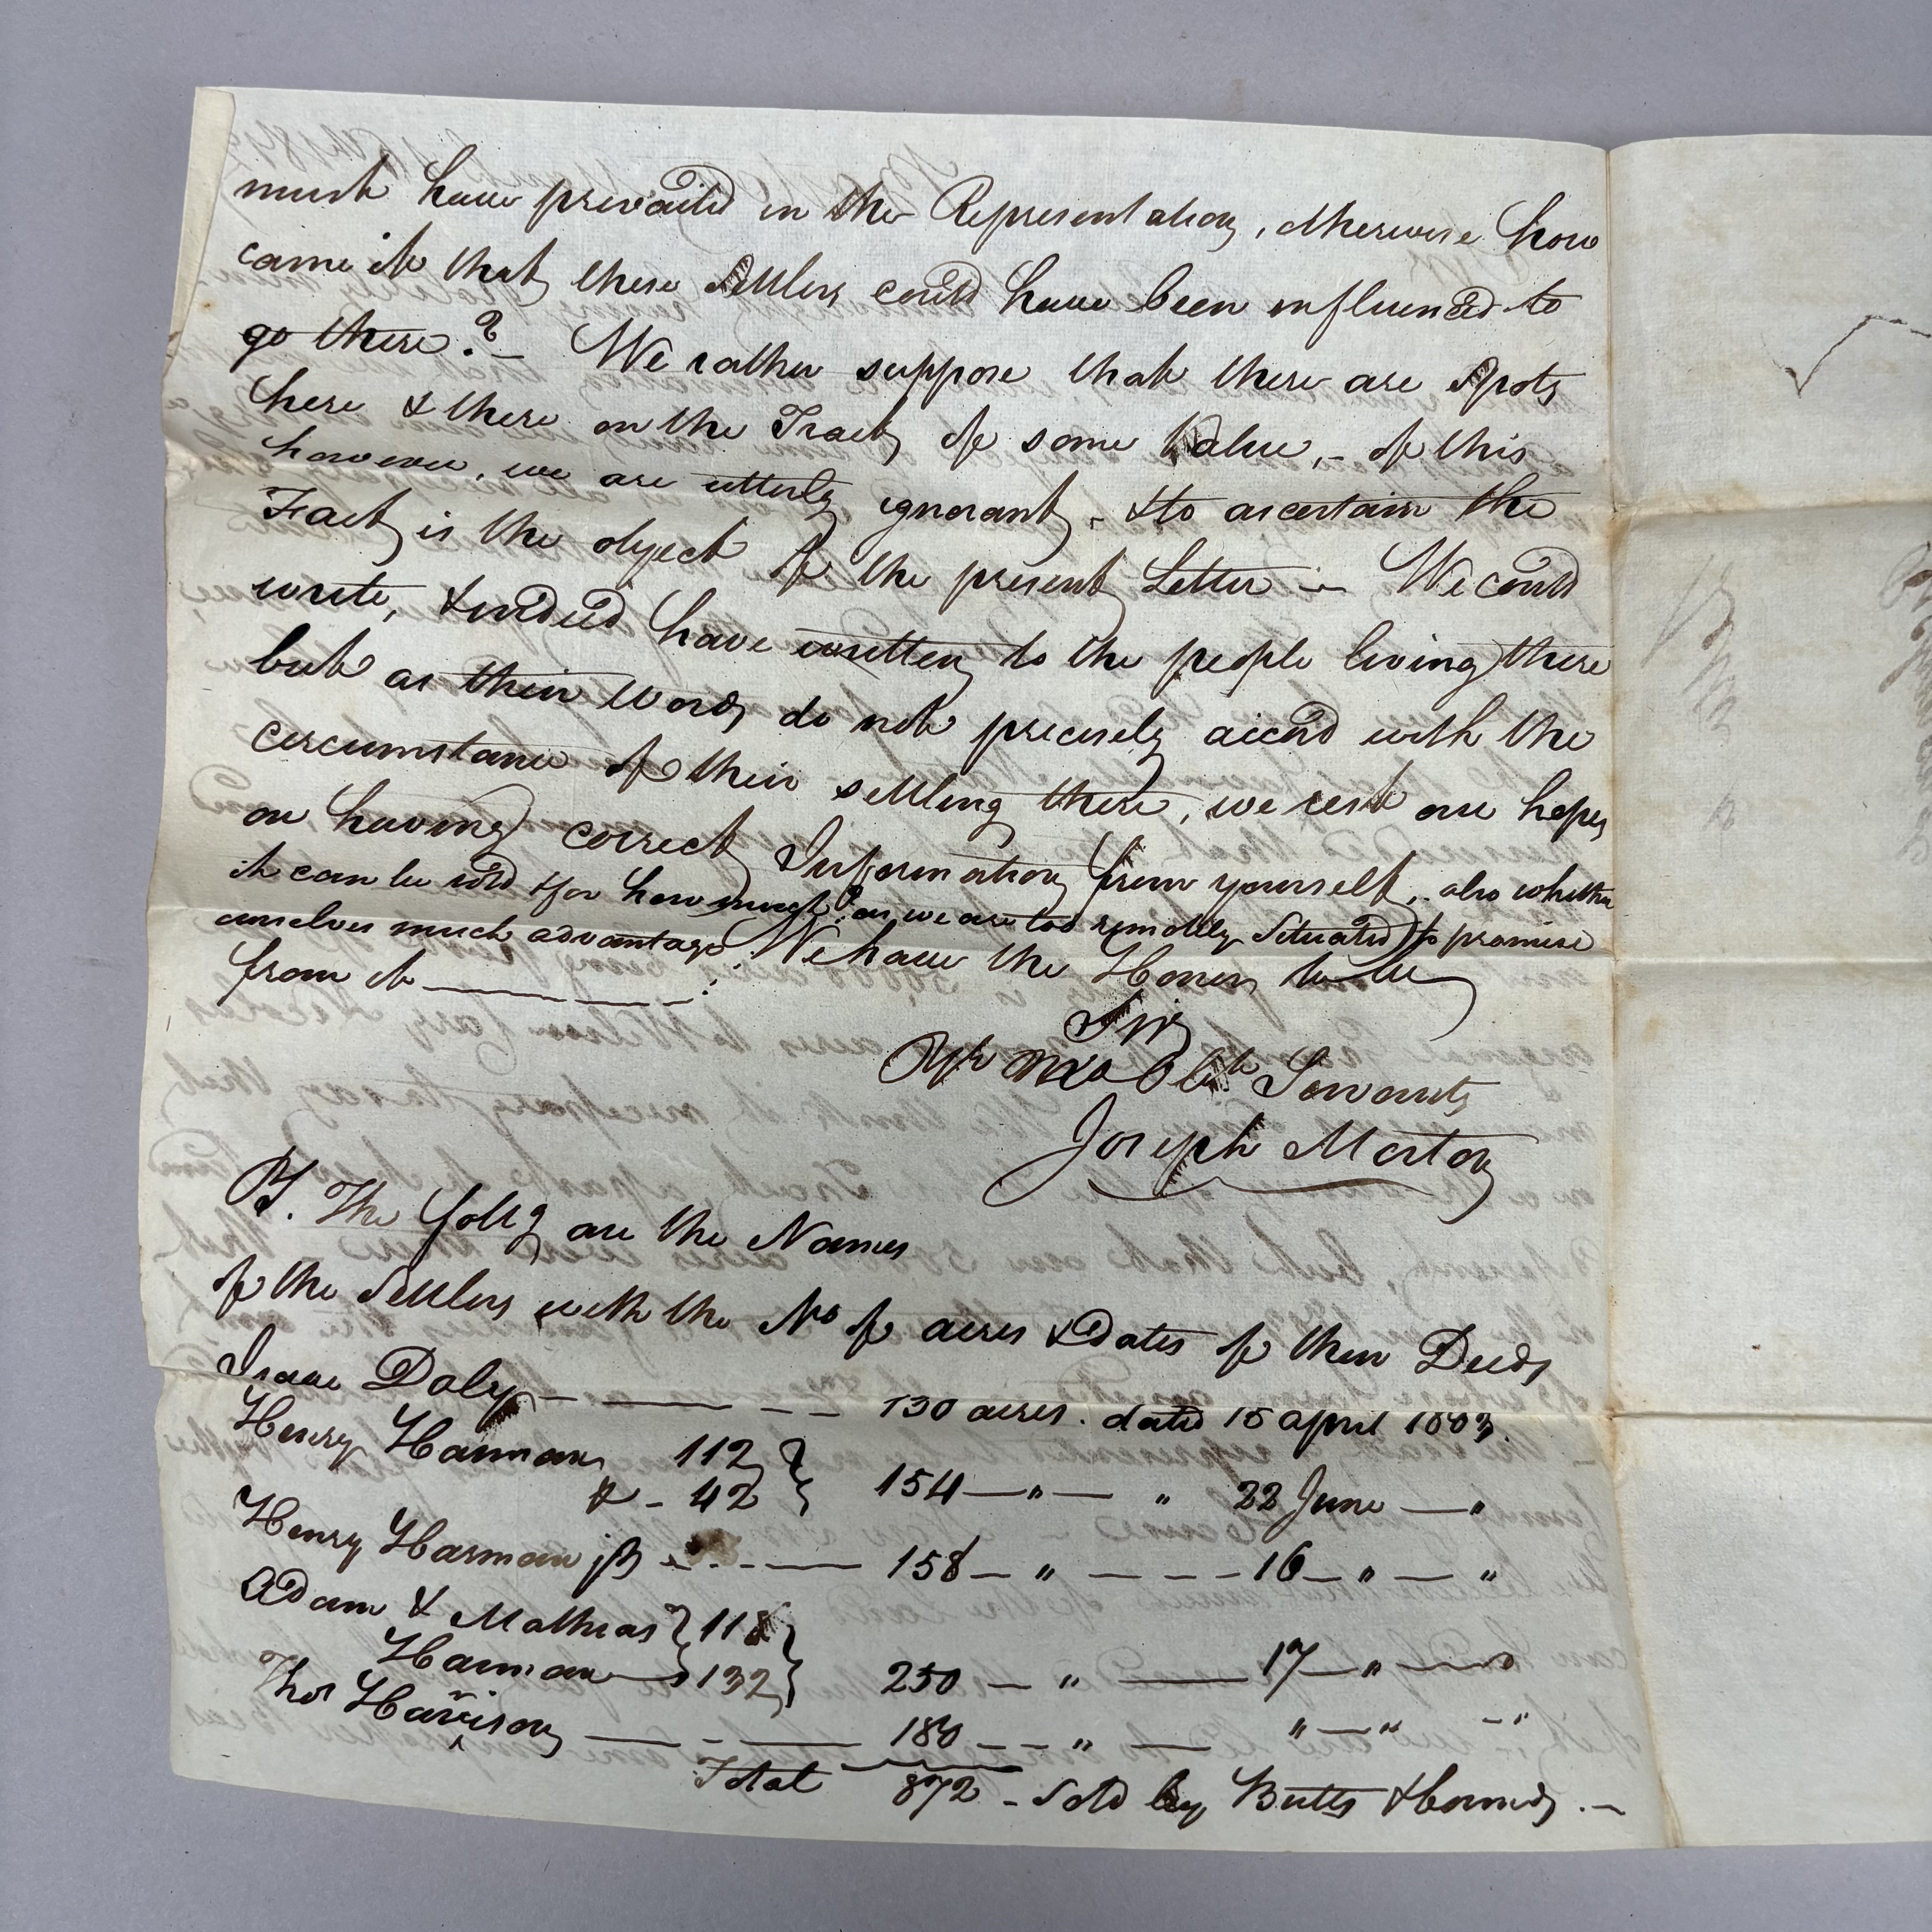 must have prevailed in the Representation, otherwise how
came it that these Settlers could have been influenced to
go there? – We rather suppose that there are Spots
here & there on the Tract of some Value, – of this
however, we are utterly ignorant – & to ascertain the
Fact, is the object of the present Letter – We could
write, & indeed have written to the people living there
but as their words do not precisely accord with the
circumstance of their settling there, we rest our hopes
on having correct Information from yourself, – also whether
it can be sold & for how much? as we are too remotely Situated to promise
ourselves much advantage
from it — — — : We have the Honor to be
Sir
Yr Mo Obt Servants
Joseph Marton
PS. The follg are the Names
of the Settlers with the No of acres & Dates of their Deeds
Isaac Daly — — — 130 acres. dated 15 april 1803.
Henry Harman 112
& – 42 } 154 — " — " 22 June — "
Henry Harman jr — — 158 — " — — — 16 — " — "
Adam & Mathias } 118
Harman — } 132 } 250 — " — 17 — " —
Thos Harrison — — — 180 — — " — " — " — "
Total 872 – Sold by Butts &